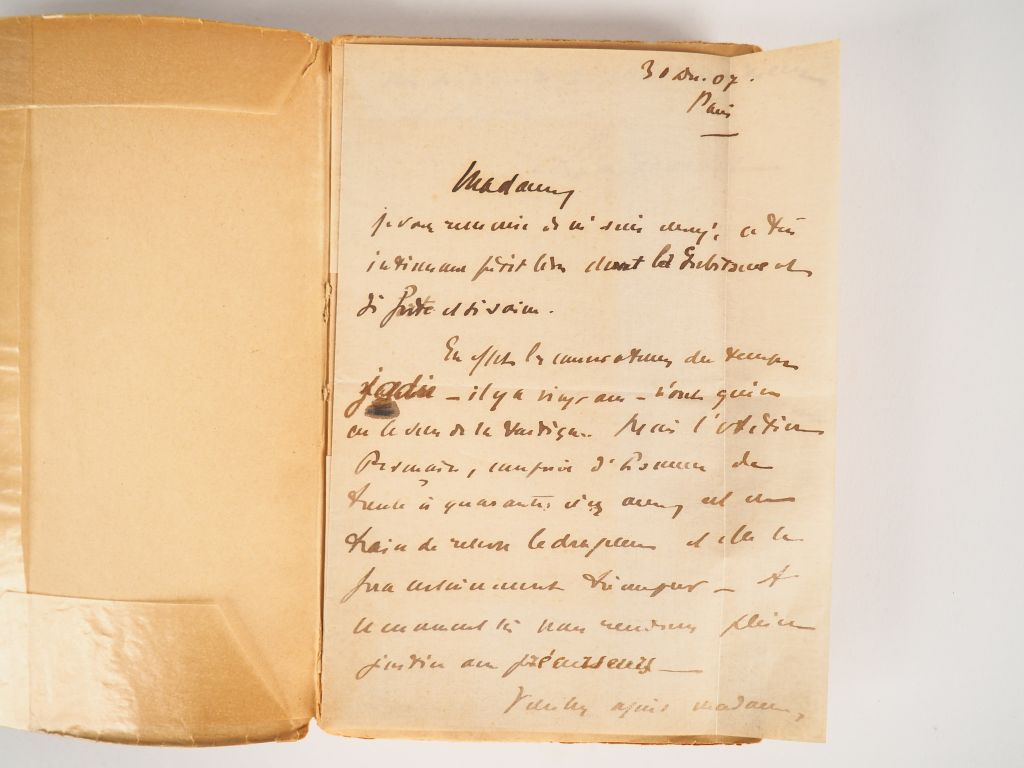 30 Déc. 07.
Paris
Madame,
je vous remercie de m'avoir envoyé ce très
intéressant petit livre dont la substance est
si forte et si saine.
En effet les conservateurs du temps
jadis – il y a vingt ans – n'ont guère
eu le sens de la
Mais l'
, composée d'hommes de
trente à quarante cinq ans, est en
train de relever le drapeau et elle le
fera certainement triompher –
ce moment là nous rendrons pleine
justice aux précurseurs –
Veuillez agréer madame,